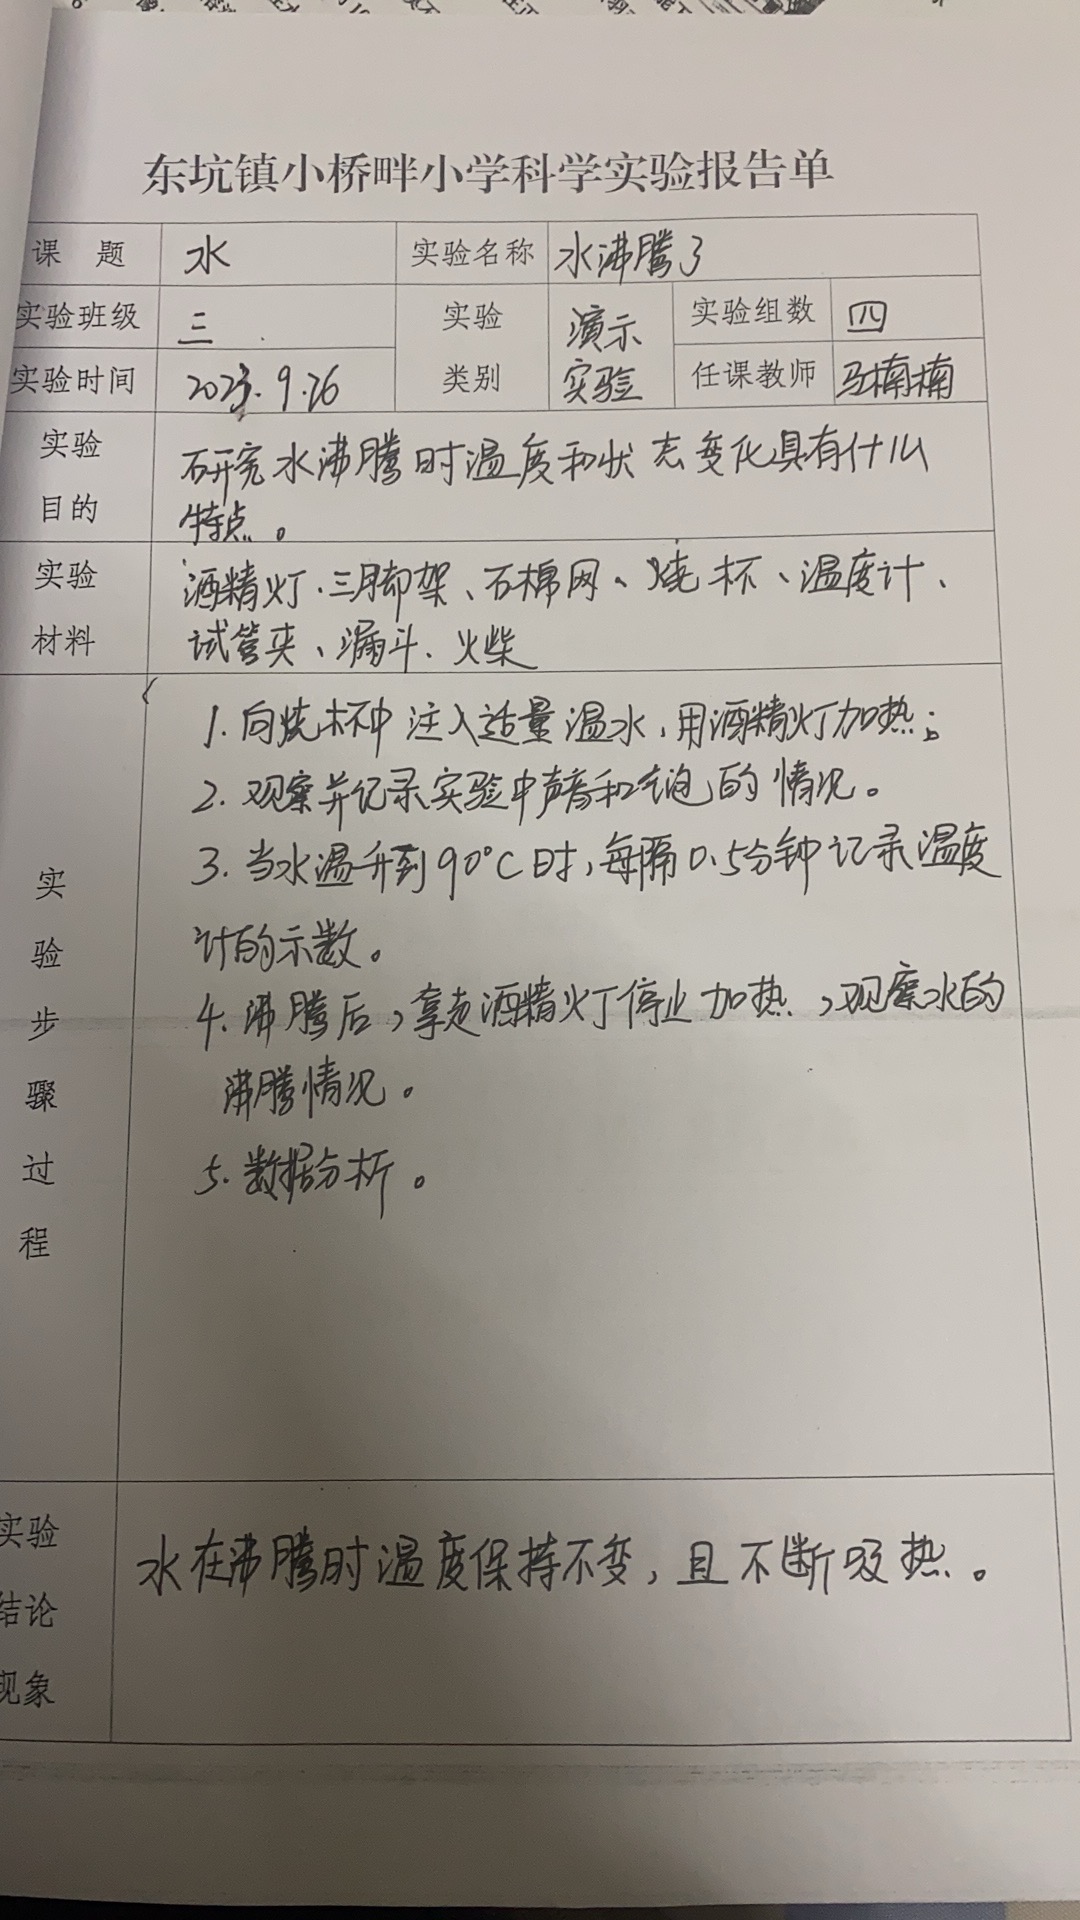 东坑镇小桥畔小学科学实验报告单
课 题 水 实验名称 水沸腾了
实验班级 三 实验类别 演示实验 实验组数 四
实验时间 2023.9.26 任课教师 马楠楠
实验目的 研究水沸腾时温度和状态变化具有什么
特点。
实验材料 酒精灯、三脚架、石棉网、烧杯、温度计、
试管夹、漏斗、火柴
实验步骤过程
1.向烧杯中注入适量温水,用酒精灯加热;
2.观察并记录实验中声音和气泡的情况。
3.当水温升到90°C时,每隔0.5分钟记录温度
计的示数。
4.沸腾后,拿走酒精灯停止加热,观察水的
沸腾情况。
5.数据分析。
实验结论现象 水在沸腾时温度保持不变,且不断吸热。